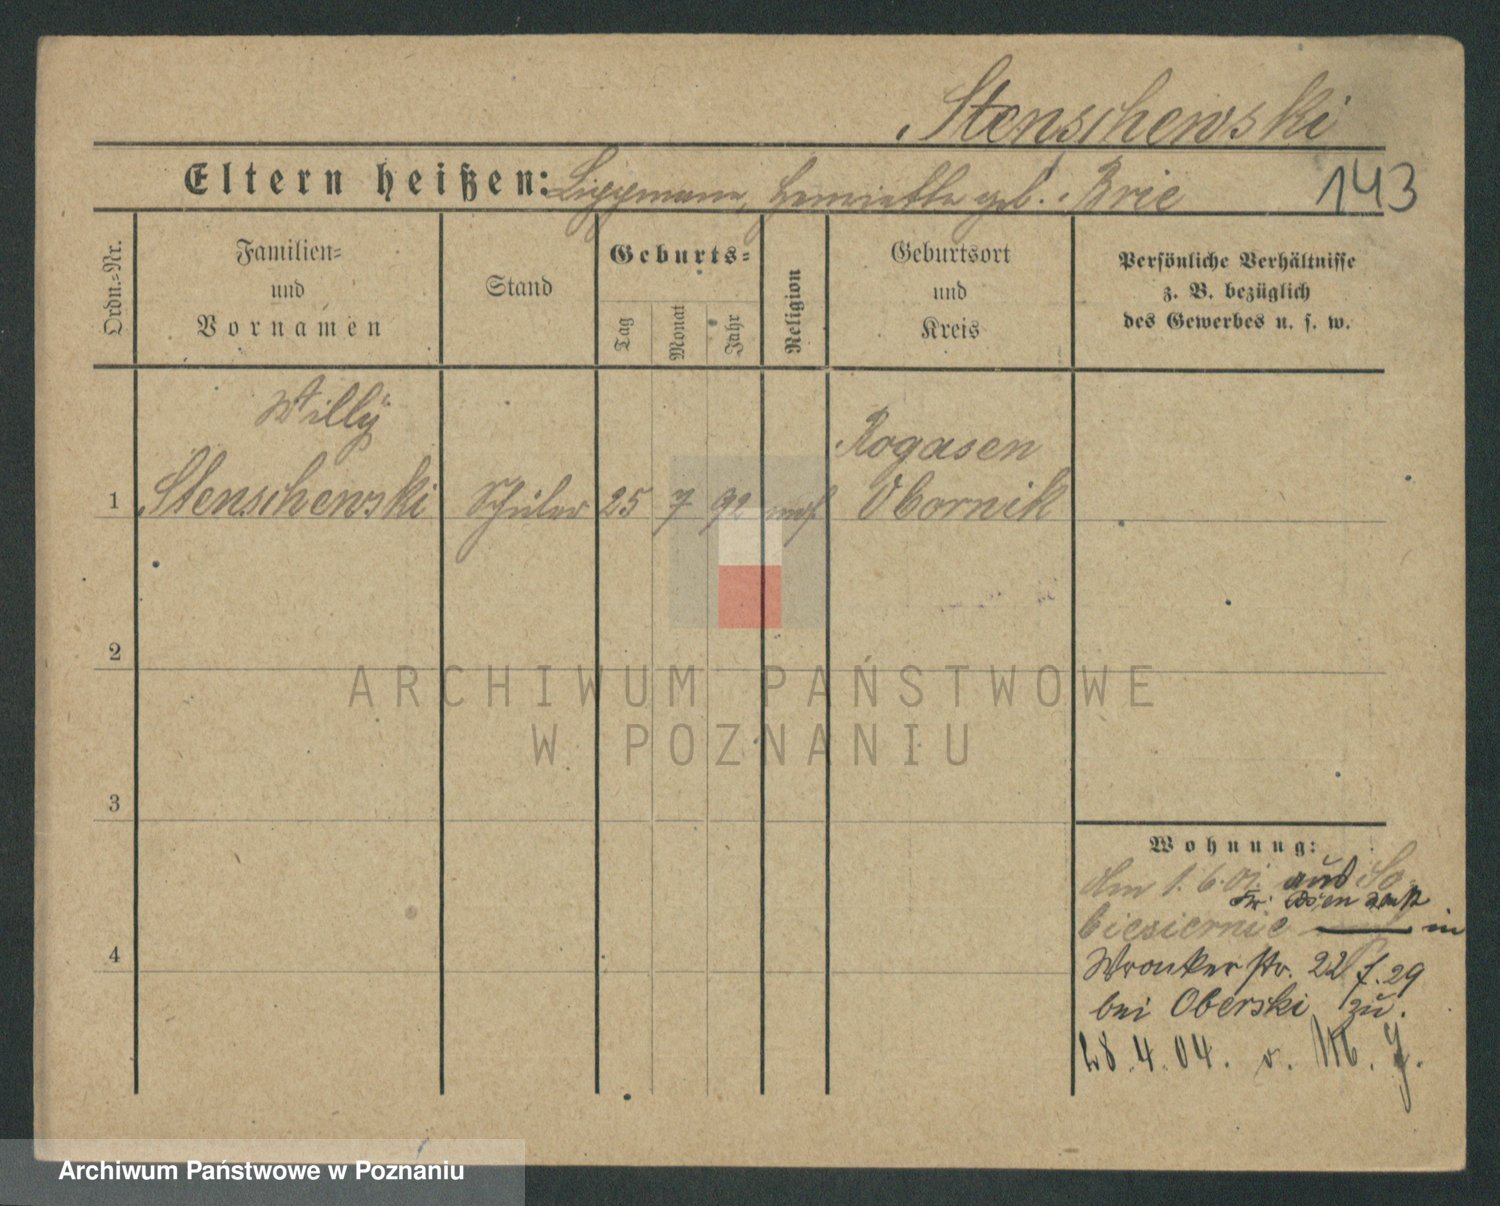 Stenschewski
Eltern heißen: Lippmann, Henriette geb. Brie
143
Ordn.=Nr.
Familien=
und
Vornamen
Stand
Geburts=
Tag
Monat
Jahr
Religion
Geburtsort
und
Kreis
Persönliche Verhältnisse
z. B. bezüglich
des Gewerbes u. s. w.
Willy
Rogasen
1 Stenschewski Schüler 25 7 92 mos. Obornik
2
ARCHIWUM PAŃSTWOWE
W POZNANIU
3
Wohnung:
Am 1. 6. 01. aus So
biesiernie in
4
Wronkerstr. 22 f. 29
bei Oberski zu.
28.4.04. v. M. J.
Archiwum Państwowe w Poznaniu